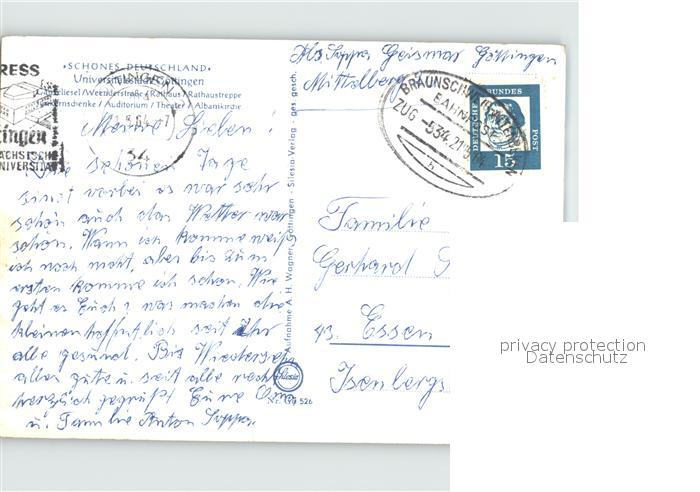 RESS
»SCHÖNES DEUTSCHLAND«
Universitätsstadt Göttingen
Gänseliesel / Weenderstraße / Rathaus / Rathaustreppe
Junkernschenke / Auditorium / Theater / Albanikirche
Abs. Soppa Geismar Göttingen
Mittelberg
TINGEN
34
tingen
ÄCHSISCHE
NIVERSITÄT
BRAUNSCHW
BAHNPOST
ZUG 534
DEUTSCHE BUNDES POST
15
Meine Lieben!
Die schönen Tage
sind vorbei es war sehr
schön auch das Wetter war
schön. Wann ich komme weiß
ich noch nicht, aber bis zum
ersten komme ich schon. Wie
geht es Euch? was machen die
kleinen hoffentlich seit Ihr
alle gesund. Bis Wiedersehn
alles gute u. seit alle recht
herzlich gegrüßt Eure Oma
u. Familie Anton Soppa.
Aufnahme A. H. Wagner, Göttingen · Silesia Verlag · ges. gesch.
Silesia
526
Familie
Gerhard S
43. Essen
Isenbergs
privacy protection
Datenschutz